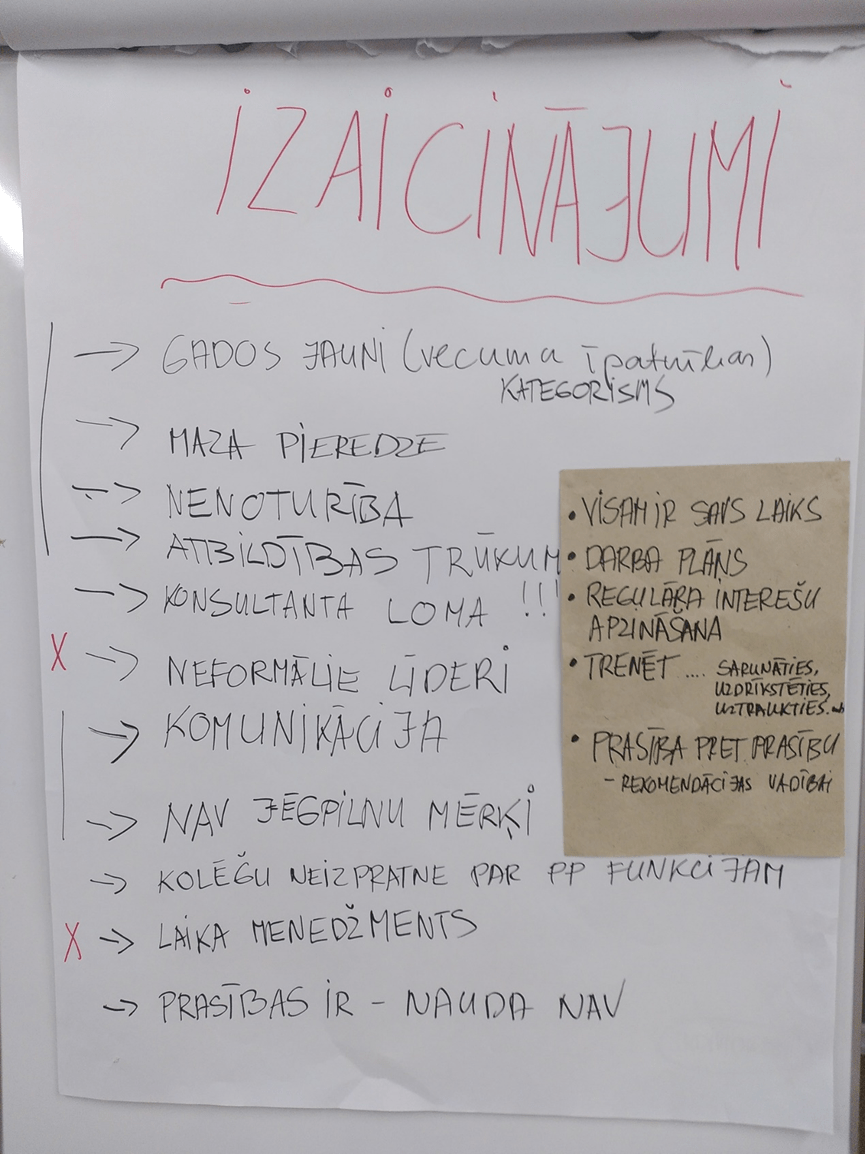 IZAICINĀJUMI
→ GADOS JAUNI (vecuma īpatnības)
KATEGORISMS
→ MAZA PIEREDZE
→ NENOTURĪBA
→ ATBILDĪBAS TRŪKUM
→ KONSULTANTA LOMA !!!
X → NEFORMĀLIE LĪDERI
→ KOMUNIKĀCIJA
→ NAV JĒGPILNU MĒRĶI
→ KOLĒĢU NEIZPRATNE PAR PP FUNKCIJAM
X → LAIKA MENEDŽMENTS
→ PRASĪBAS IR – NAUDA NAV
• VISAM IR SAVS LAIKS
• DARBA PLĀNS
• REGULĀRA INTEREŠU
APZINĀŠANA
• TRENĒT .... SARUNĀTIES,
UZDRĪKSTĒTIES,
UZTRAUKTIES...
• PRASĪBA PRET PRASĪBU
– REKOMENDĀCIJAS VADĪBAI